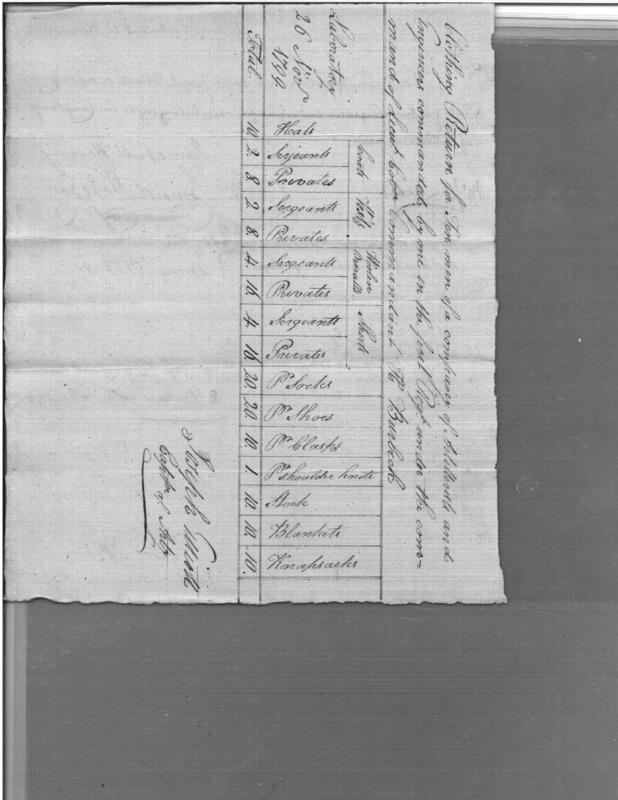 Clothing Return for Ten men of a company of Artillerists and
Engineers commanded by me in the first Regt under the com-
mand of Lieut Colo Commandant H. Burbeck
Laboratory
26 Novr
1799
Total.
Hats 10.
Coats
Serjeants 2.
Privates 8
Vests
Sergeants 2
Privates 8.
Woolen
Overalls
Sergeants 4.
Privates 16
Shirts
Sergeants 4
Privates 16
Pr Socks 20.
Pr Shoes 20
Pr Clasps 10.
Pr Shoulder knots 1.
Stock 10.
Blankets 10.
Knapsacks 10.
Joseph Elliott
Captn of Arty